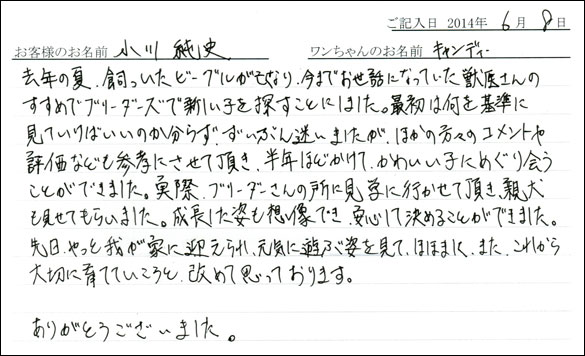 ご記入日 2014年 6月 8日
お客様のお名前 小川 純史 ワンちゃんのお名前 キャンディー
去年の夏、飼っていたビーグルが亡くなり、今までお世話になっていた獣医さんの
すすめでブリーダーズで新しい子を探すことにしました。最初は何を基準に
見ていけばいいのか分らず、ずいぶん迷いましたが、ほかの方々のコメントや
評価なども参考にさせて頂き、半年ほどかけて、かわいい子にめぐり会う
ことができました。実際、ブリーダーさんの所に見学に行かせて頂き、親犬
も見せてもらいました。成長した姿も想像でき、安心して決めることができました。
先日、やっと我が家に迎えられ、元気に遊ぶ姿を見て、ほほましく、また、これから
大切に育てていこうと、改めて思っております。
ありがとうございました。